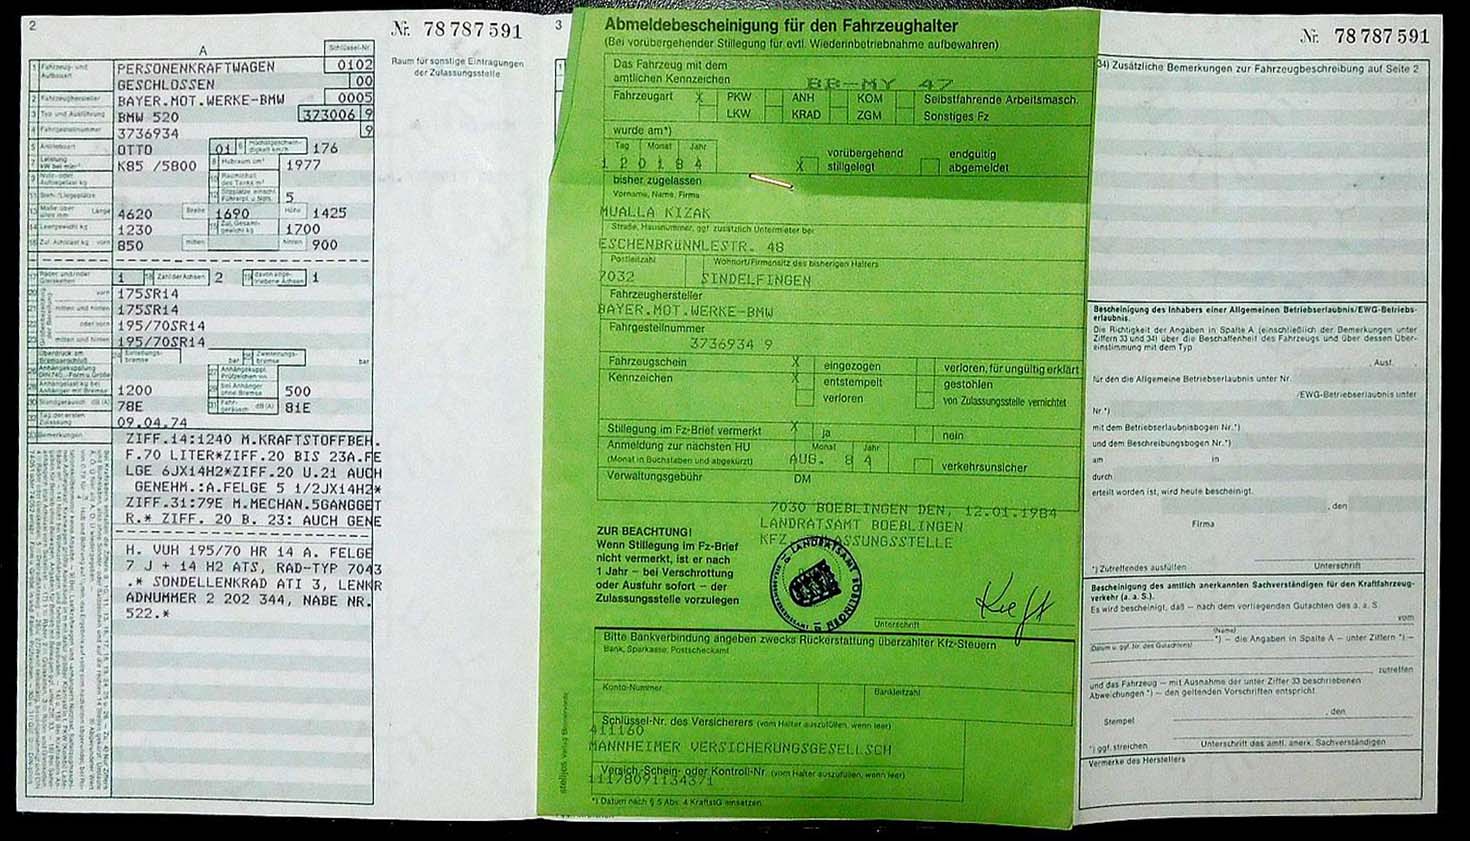 2
Nr. 78 787 591
A
Schlüssel-Nr.
Raum für sonstige Eintragungen
der Zulassungsstelle
1 Fahrzeug- und
Aufbauart
PERSONENKRAFTWAGEN 0102
GESCHLOSSEN 00
2 Fahrzeughersteller BAYER.MOT.WERKE-BMW 0005
3 Typ und Ausführung BMW 520 373006 9
4 Fahrgestellnummer 3736934 9
5 Antriebsart OTTO 01 6 Höchstgeschwin-
digkeit km/h 176
7 Leistung
kW bei min K85 /5800 8 Hubraum cm³ 1977
5
13 Maße über
alles mm Länge 4620 Breite 1690 Höhe 1425
14 Leergewicht kg 1230 15 Zul. Gesamt-
gewicht kg 1700
16 Zul. Achslast kg vorn 850 mitten hinten 900
17 Räder und/oder
Gleisketten 1 18 Zahl der Achsen 2 19 davon ange-
triebene Achsen 1
vorn 175SR14
mitten und hinten 175SR14
oder vorn 195/70SR14
mitten und hinten 195/70SR14
Überdruck am
Bremsanschluß Einleitungs-
bremse bar Zweileitungs-
bremse bar
Anhängelast kg bei
Anhänger mit Bremse 1200 bei Anhänger
ohne Bremse 500
30 Standgeräusch dB (A) 78E 31 Fahr-
geräusch dB (A) 81E
32 Tag der ersten
Zulassung 09.04.74
33 Bemerkungen
ZIFF.14:1240 M.KRAFTSTOFFBEH.
F.70 LITER*ZIFF.20 BIS 23A.FE
LGE 6JX14H2*ZIFF.20 U.21 AUCH
GENEHM.:A.FELGE 5 1/2JX14H2*
ZIFF.31:79E M.MECHAN.5GANGGET
R.* ZIFF. 20 B. 23: AUCH GENE
H. VUH 195/70 HR 14 A. FELGE
7 J + 14 H2 ATS, RAD-TYP 7043
.* SONDELLENKRAD ATI 3, LENKR
ADNUMMER 2 202 344, NABE NR.
522.*
3
Abmeldebescheinigung für den Fahrzeughalter
(Bei vorübergehender Stillegung für evtl. Wiederinbetriebnahme aufbewahren)
Das Fahrzeug mit dem
amtlichen Kennzeichen BB-MY 47
Fahrzeugart X PKW ANH KOM Selbstfahrende Arbeitsmasch.
LKW KRAD ZGM Sonstiges Fz
wurde am*)
Tag Monat Jahr
120184 X vorübergehend
stillgelegt endgültig
abgemeldet
bisher zugelassen
Vorname, Name, Firma
MUALLA KIZAK
Straße, Hausnummer, ggf. zusätzlich Untermieter bei
ESCHENBRüNNLESTR. 48
Postleitzahl Wohnort/Firmensitz des bisherigen Halters
7032 SINDELFINGEN
Fahrzeughersteller
BAYER.MOT.WERKE-BMW
Fahrgestellnummer
3736934 9
Fahrzeugschein X eingezogen verloren, für ungültig erklärt
Kennzeichen X entstempelt gestohlen
verloren von Zulassungsstelle vernichtet
Stillegung im Fz-Brief vermerkt X ja nein
Anmeldung zur nächsten HU Monat Jahr
(Monat in Buchstaben und abgekürzt) AUG. 84 verkehrsunsicher
Verwaltungsgebühr DM
7030 BOEBLINGEN DEN, 12.01.1984
LANDRATSAMT BOEBLINGEN
ZUR BEACHTUNG!
Wenn Stillegung im Fz-Brief
nicht vermerkt, ist er nach
1 Jahr – bei Verschrottung
oder Ausfuhr sofort – der
Zulassungsstelle vorzulegen
LANDRATSAMT BÖBLINGEN
Unterschrift
Bitte Bankverbindung angeben zwecks Rückerstattung überzahlter Kfz-Steuern
Bank, Sparkasse, Postscheckamt
Konto-Nummer Bankleitzahl
Schlüssel-Nr. des Versicherers (vom Halter auszufüllen, wenn leer)
411160
MANNHEIMER VERSICHERUNGSGESELLSCH
Versich.-Schein- oder Kontroll-Nr. (vom Halter auszufüllen, wenn leer)
11178091134371
*) Datum nach § 5 Abs. 4 KraftStG einsetzen
Nr. 78 787 591
34) Zusätzliche Bemerkungen zur Fahrzeugbeschreibung auf Seite 2
Bescheinigung des Inhabers einer Allgemeinen Betriebserlaubnis/EWG-Betriebs-
erlaubnis.
Die Richtigkeit der Angaben in Spalte A (einschließlich der Bemerkungen unter
Ziffern 33 und 34) über die Beschaffenheit des Fahrzeugs und über dessen Über-
einstimmung mit dem Typ
Ausf.
für den die Allgemeine Betriebserlaubnis unter Nr.
/EWG-Betriebserlaubnis unter
Nr.*)
mit dem Betriebserlaubnisbogen Nr.*)
und dem Beschreibungsbogen Nr.*)
am in
durch
erteilt worden ist, wird heute bescheinigt.
, den
Firma
*) Zutreffendes ausfüllen Unterschrift
Bescheinigung des amtlich anerkannten Sachverständigen für den Kraftfahrzeug-
verkehr (a. a. S.).
Es wird bescheinigt, daß – nach dem vorliegenden Gutachten des a. a. S.
vom
(Name)
*) – die Angaben in Spalte A – unter Ziffern *) –
(Datum u. ggf. Nr. des Gutachtens)
zutreffen
und das Fahrzeug – mit Ausnahme der unter Ziffer 33 beschriebenen
Abweichungen *) – den geltenden Vorschriften entspricht.
, den
Stempel
*) ggf. streichen Unterschrift des amtl. anerk. Sachverständigen
Vermerke des Herstellers